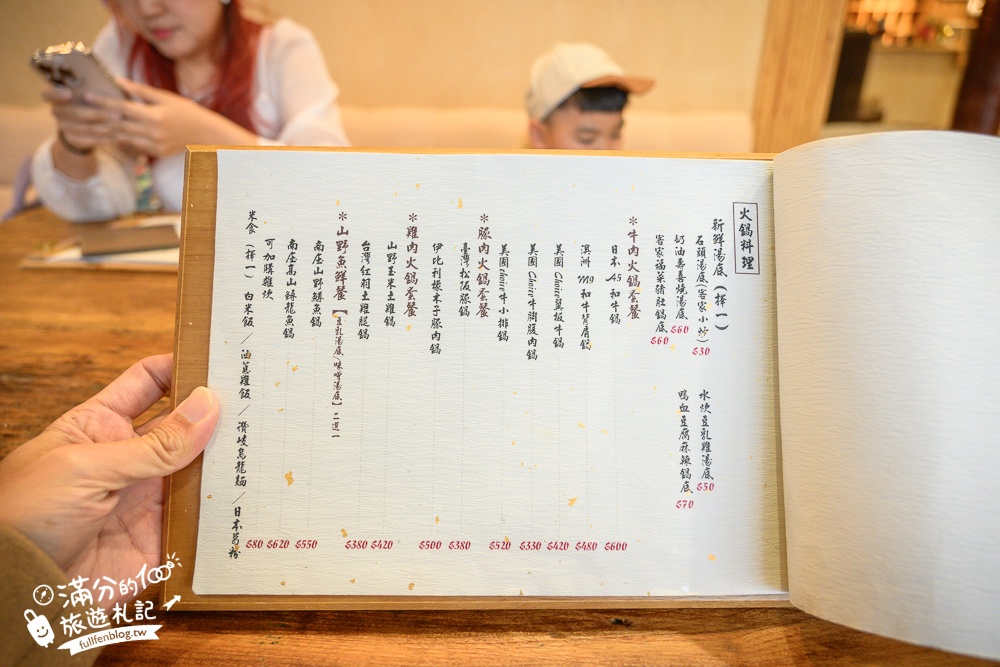 火鍋料理
新鮮湯底(擇一)
石頭湯底(客家小炒) $30
水炊豆乳雞湯底 $50
奶油壽喜燒湯底 $60
鴨血豆腐麻辣鍋底 $70
客家福菜豬肚鍋底 $60
*牛肉火鍋套餐
日本A5和牛鍋 $600
澳洲M9和牛背肩鍋 $480
美國Choice翼板牛鍋 $420
美國Choice牛胸腹肉鍋 $330
美國choice牛小排鍋 $520
*豚肉火鍋套餐
臺灣松阪豚鍋 $380
伊比利橡木子豚肉鍋 $500
*雞肉火鍋套餐
山野玉米土雞鍋 $420
台灣紅羽土雞腿鍋 $380
*山野魚鮮餐【豆乳湯底/味噌湯底】二選一
南庄山野鱒魚鍋 $550
南庄高山鱘龍魚鍋 $620
可加購雞炊 $80
米食(擇一) 白米飯/油蔥雞飯/讚岐烏龍麵/日本葛粉
滿分的100
旅遊札記
fullfenblog.tw